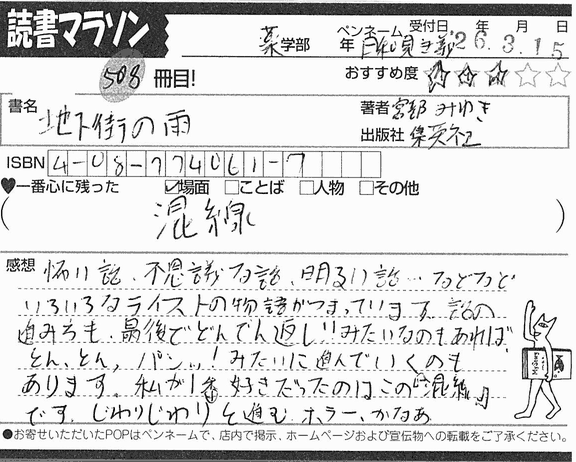 読書マラソン
薬学部 年 ペンネーム 受付日 年 月 日
26.3.15
508 冊目!
おすすめ度 ★★★☆☆
書名 地下街の雨
著者 宮部みゆき
出版社 集英社
ISBN 4-08-774061-7
♥一番心に残った ☑場面 □ことば □人物 □その他
(混線)
感想 怖い話、不思議な話、明るい話…などなど
いろいろなテイストの物語がつまっています。話の
進みも、最後でどんでん返し!!みたいなのもあれば
とん、とん、パンッ!みたいに進んでいくのも
あります。私が1番好きだったのはこの『混線』
です。じわりじわりと進む、ホラー、かなあ
●お寄せいただいたPOPはペンネームで、店内で掲示、ホームページおよび宣伝物への転載をご了承ください。